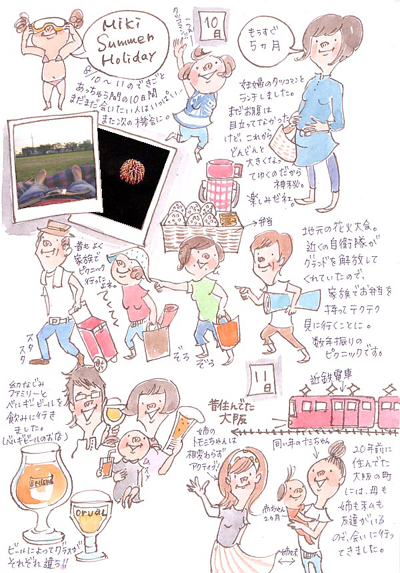 Miki
Summer
Holiday
8/10〜11のできごと
あっちゅう間の10日間
まだまだ会いたい人はいっぱい!
また次の機会に。
10日
もうすぐ
5ヵ月
妊婦のタツコマンと
ランチしました。
まだお腹は
目立ってなかった
けど、これから
どんどんと
大きくなっ
てゆくのだから
神秘。
楽しみだね。
弁当
地元の花火大会。
近くの自衛隊が
グランドを解放して
くれていたので、
家族でお弁当を
持ってテクテク
見に行くことに。
数年振りの
ピクニックです。
昔もよく
家族で
ピクニック
行った
よね。
スタ
スタ
ぞろ
ぞろ
11日
近鉄電車
昔住んでた
大阪
幼なじみ
ファミリーと
ベルギービールを
飲みに行き
ました
(ベルギービールのお店)
姉の
トモミちゃんは
相変わらず
アクティブ!
同い年の
20年前に
住んでた
大阪の町
には、母も
姉も私も
友達がいる
ので、会いに行っ
てきました。
赤ちゃん
2ヵ月
orval
ビールによってグラスが
それぞれ違う!!